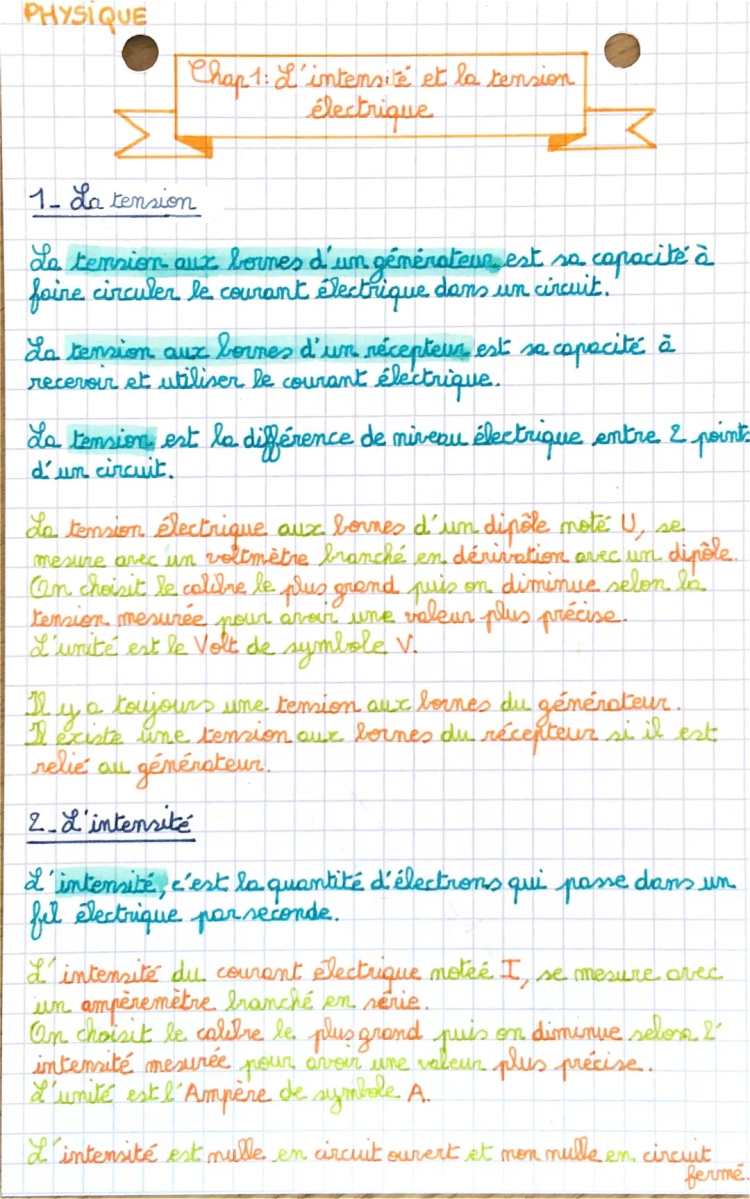 PHYSIQUE
Chap1: L'intensité et la tension
électrique
1_ La tension
La tension aux bornes d'un générateur est sa capacité à
faire circuler le courant électrique dans un circuit.
La tension aux bornes d'un récepteur est sa capacité à
recevoir et utiliser le courant électrique.
La tension est la différence de niveau électrique entre 2 points
d'un circuit.
La tension électrique aux bornes d'un dipôle noté U, se
mesure avec un voltmètre branché en dérivation avec un dipôle.
On choisit le calibre le plus grand puis on diminue selon la
tension mesurée pour avoir une valeur plus précise.
L'unité est le Volt de symbole V.
Il y a toujours une tension aux bornes du générateur.
Il existe une tension aux bornes du récepteur si il est
relié au générateur.
2_ L'intensité
L'intensité, c'est la quantité d'électrons qui passe dans un
fil électrique par seconde.
L'intensité du courant électrique noteé I, se mesure avec
un ampèremètre branché en série.
On choisit le calibre le plus grand puis on diminue selon l'
intensité mesurée pour avoir une valeur plus précise.
L'unité est l'Ampère de symbole A.
L'intensité est nulle en circuit ouvert et non nulle en circuit
fermé.